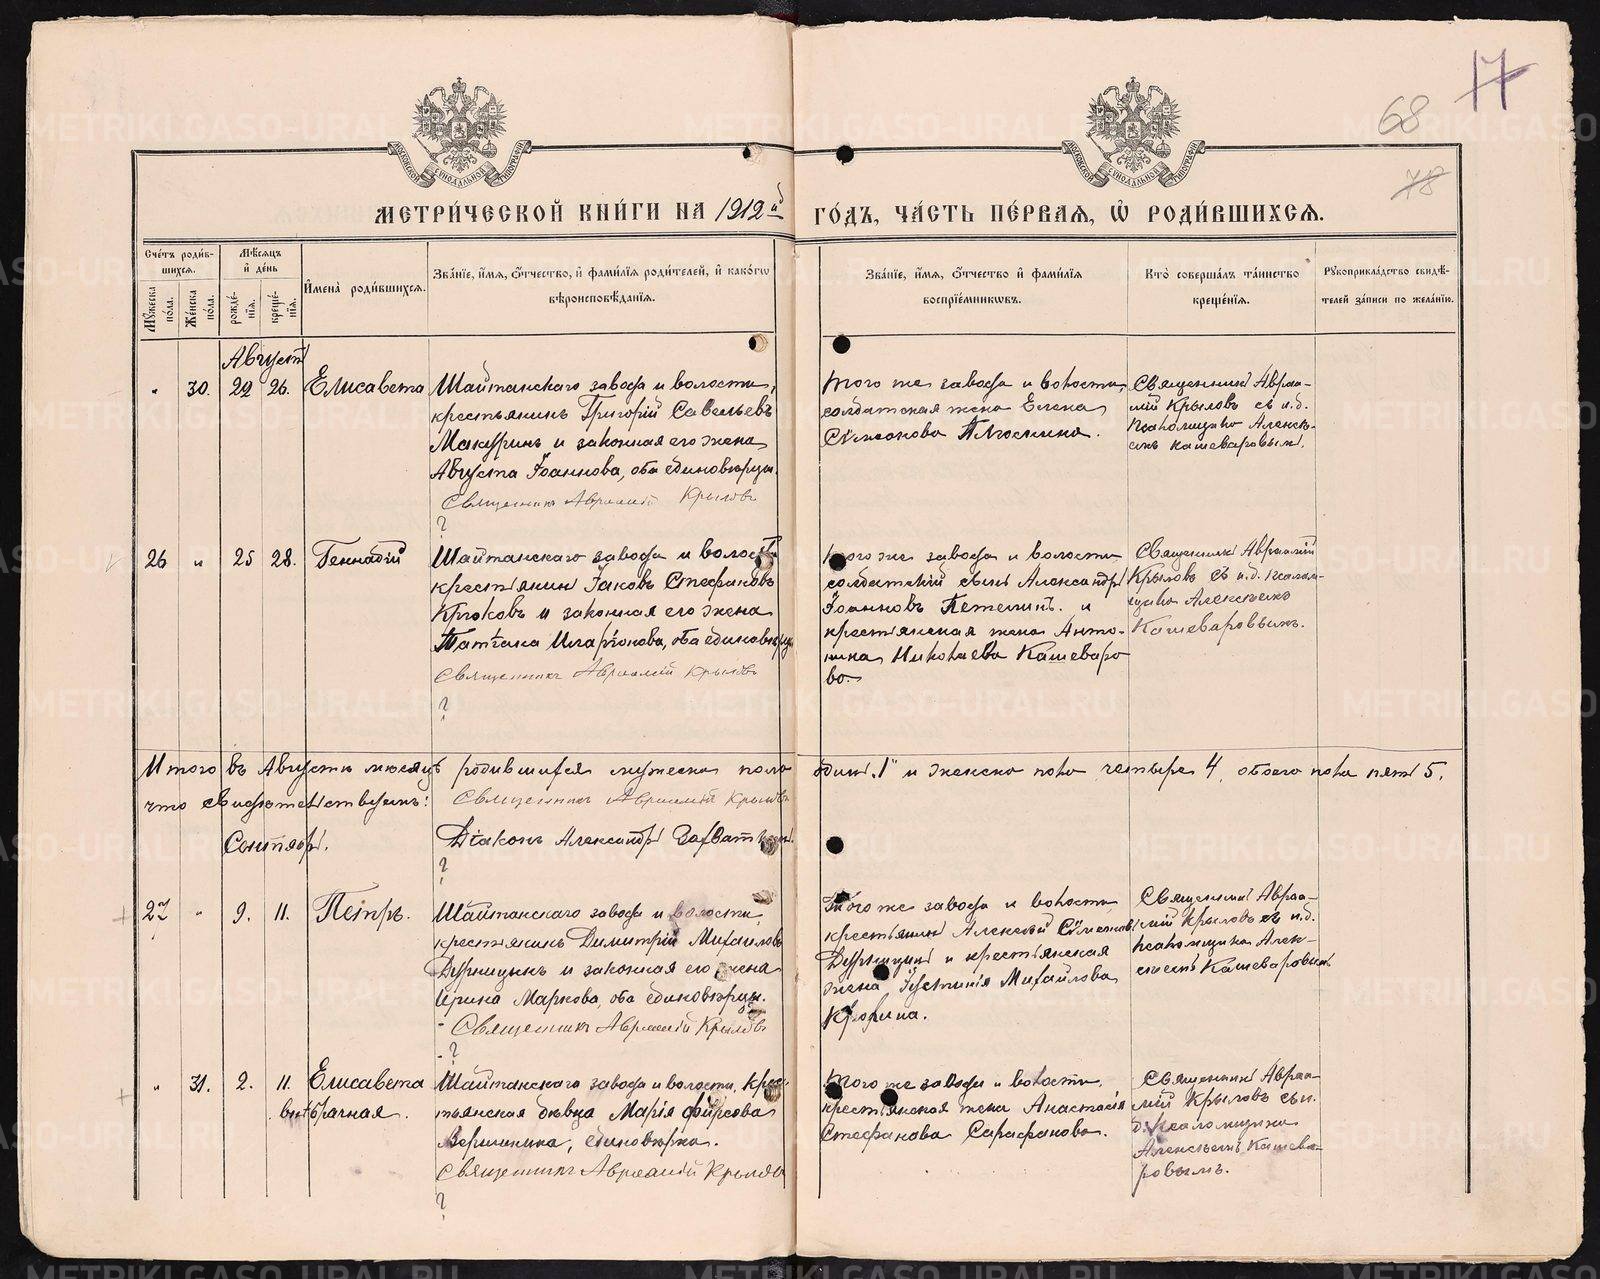 17
68
78
МЕТРИ́ЧЕСКОЙ КНИ́ГИ НА 1912й ГО́ДЪ, ЧА́СТЬ ПЕ́РВАЯ, Ѡ҆ РОДИ́ВШИХСЯ.
Сче́тъ роди́в-
шихся.
Мѣ́сяцъ
и҆ де́нь
И҆мена̀ роди́вшихся.
Зва́нїе, и҆́мя, ѻ҆́тчество, и҆ фами́лїя роди́телей, и҆ како́гѡ
вѣроисповѣ́данїя.
Зва́нїе, и҆́мя, ѻ҆́тчество и҆ фами́лїя
воспрїе́мникѡвъ.
Кто̀ соверша́лъ та́инство
креще́нїя.
Рꙋкоприкла́дство свидѣ́-
телей за́писи по жела́нїю.
Мꙋ́жеска
по́ла.
Же́нска
по́ла.
рожде́-
нїя.
креще́-
нїя.
Августъ
„ 30. 22 26. Елисавета
Шайтанскаго завода и волости,
крестьянинъ Григорій Савельевъ
Макуринъ и законная его жена
Августа Іоаннова, оба единоверцы.
Священникъ Авраамій Крыловъ
?
того же завода и волости,
солдатская жена Елена
Симонова Плюснина.
Священникъ Авраа-
мій Крыловъ съ и.д.
псаломщика Алексѣ-
емъ Кашеваровымъ.
26 „ 25 28. Геннадій
Шайтанскаго завода и волости
крестьянинъ Іаковъ Стефановъ
Крюковъ и законная его жена
Татіана Иларіонова, оба единоверцы
Священникъ Авраамій Крыловъ
?
того же завода и волости
солдатскій сынъ Александръ
Іоанновъ Петелинъ. и
крестьянская жена Анто-
нина Николаева Кашеваро
ва.
Священникъ Авраамій
Крыловъ съ и.д. псалом-
щика Алексѣемъ
Кашеваровымъ.
Итого въ Августѣ мѣсяцѣ родившихся мужеска пола одинъ „1" и женска пола четыре 4, обоего пола пять 5,
что свидѣтельствуемъ: Священникъ Авраамій Крыловъ
Діаконъ Александръ
?
Сентябрь.
27 „ 9. 11. Петръ.
Шайтанскаго завода и волости,
крестьянинъ Димитрій Михайловъ
Дурницынъ и законная его жена
Ирина Маркова, оба единоверцы.
Священникъ Авраамій Крыловъ
?
того же завода и волости
крестьянинъ Алексѣй Симоновъ
Дурницынъ и крестьянская
жена Іустинія Михайлова
Священникъ Авраа-
мій Крыловъ съ и.д.
псаломщика Алек-
сѣемъ Кашеваровымъ
„ 31. 2. 11. Елисавета
внѣбрачная.
Шайтанскаго завода и волости, крес-
тьянская дѣвица Марія Фирсова
Вершинина, единоверка.
Священникъ Авраамій Крыловъ
?
того же завода и волости,
крестьянская жена Анастасія
Стефанова Сарафанова.
Священникъ Авраа-
мій Крыловъ съ и.
д. псаломщика
Алексѣемъ Кашева-
ровымъ.